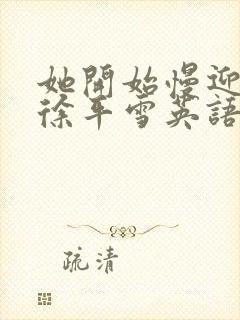 她開始慢迎
徐平雪英語
疏清